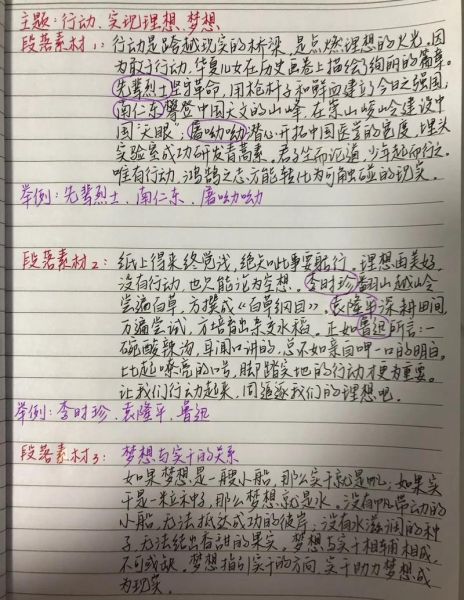 主题：行动、实现理想、梦想
段落素材1：行动是跨越现实的桥梁，是点燃理想的火光，因
为敢于行动，华夏儿女在历史画卷上描绘绚丽的篇章。
先辈烈士坚守革命，用枪杆子和鲜血建的今日之强国，
南仁东攀登中国天文的山峰，在崇山峻岭建设中
国"天眼"，屠呦呦潜心开拓中国医学的宽度，埋头
实验室成功研发青蒿素。君子生而沉潜，少年起而行之。
唯有行动，鸿鹄之志方能转化为可触碰的现实。
举例：先辈烈士、南仁东、屠呦呦
段落素材2：纸上得来终觉浅，绝知此事要躬行。理想固美好，
没有行动，也只能沦为空想。李时珍翻山越岭
尝遍百草，方撰成《百草纲目》，袁隆平深耕田间
万遍尝试，方培育出杂交水稻。正如鲁迅所言：一
碗酸辣汤，耳闻口讲的，总不如亲自呷一口的明白。
比起嘹亮的口号，脚踏实地的行动才更为重要。
让我们行动起来，同追逐我们的理想吧。
举例：李时珍、袁隆平、鲁迅
段落素材3：梦想与实干的关系
如果梦想是一艘小船，那么实干就是帆；如果实
干是一粒种子，那么梦想就是水。没有帆带动的
小船，无法抵达成功的彼岸；没有水滋润的种
子，无法结出香甜的果实。梦想与实干相辅相成，
不可或缺。梦想指引实干的方向，实干助力梦想成
为现实。